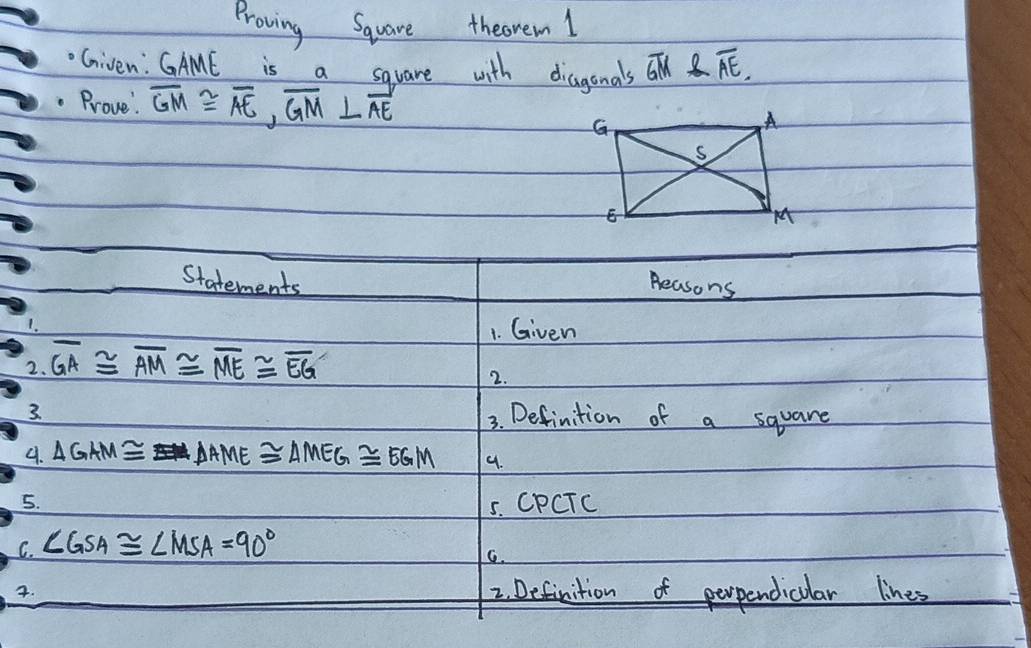 Proving Square theorem 1
• Given: GAME is a square with diagonals G̅M̅ & A̅E̅.
• Prove: G̅M̅ ≅ A̅E̅, G̅M̅ ⊥ A̅E̅
G A
S
E M
Statements Reasons
1. 1. Given
2. G̅A̅ ≅ A̅M̅ ≅ M̅E̅ ≅ E̅G̅ 2.
3. 3. Definition of a square
4. ΔGAM ≅ ΔAME ≅ ΔMEG ≅ EGM 4.
5. 5. CPCTC
6. ∠GSA ≅ ∠MSA = 90° 6.
7. 7. Definition of perpendicular lines